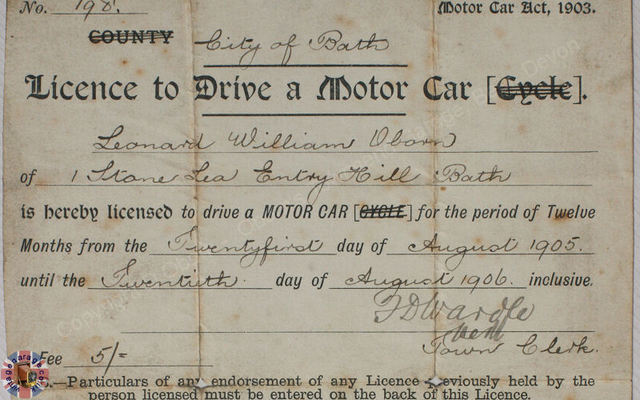 No. 198. Motor Car Act, 1903.
COUNTY City of Bath
Licence to Drive a Motor Car [Cycle].
Leonard William Oborn
of 1 Stone Lea Entry Hill Bath
is hereby licensed to drive a MOTOR CAR [CYCLE] for the period of Twelve
Months from the Twentyfirst day of August 1905.
until the Twentieth day of August 1906. inclusive.
FDWardle
Town Clerk.
Fee 5/=
—Particulars of any endorsement of any Licence previously held by the
person licensed must be entered on the back of this Licence.